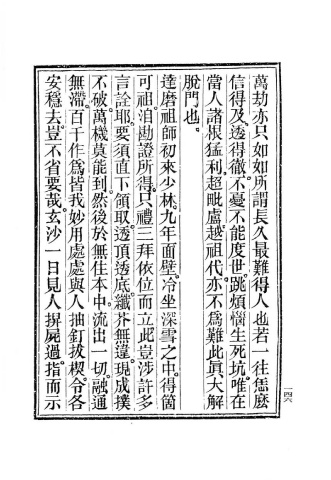 萬劫亦只如如所謂長久最難得人也若一往恁麼
信得及透得徹不憂不能度世跳煩惱生死坑唯在
當人諸根猛利超毗盧越祖代亦不爲難此眞大解
脫門也。
達磨祖師初來少林九年面壁。冷坐深雪之中得箇
可祖洎勘證所得。只禮三拜依位而立此豈涉許多
言詮耶。要須直下領取。透頂透底。纖芥無違。現成撲
不破萬機莫能到然後於無住本中。流出一切。融通
無滯。百千作爲皆我妙用處處與人抽釘拔楔。令各
安穩去。豈不省要哉。玄沙一日見人掜屍過。指而示
一四六